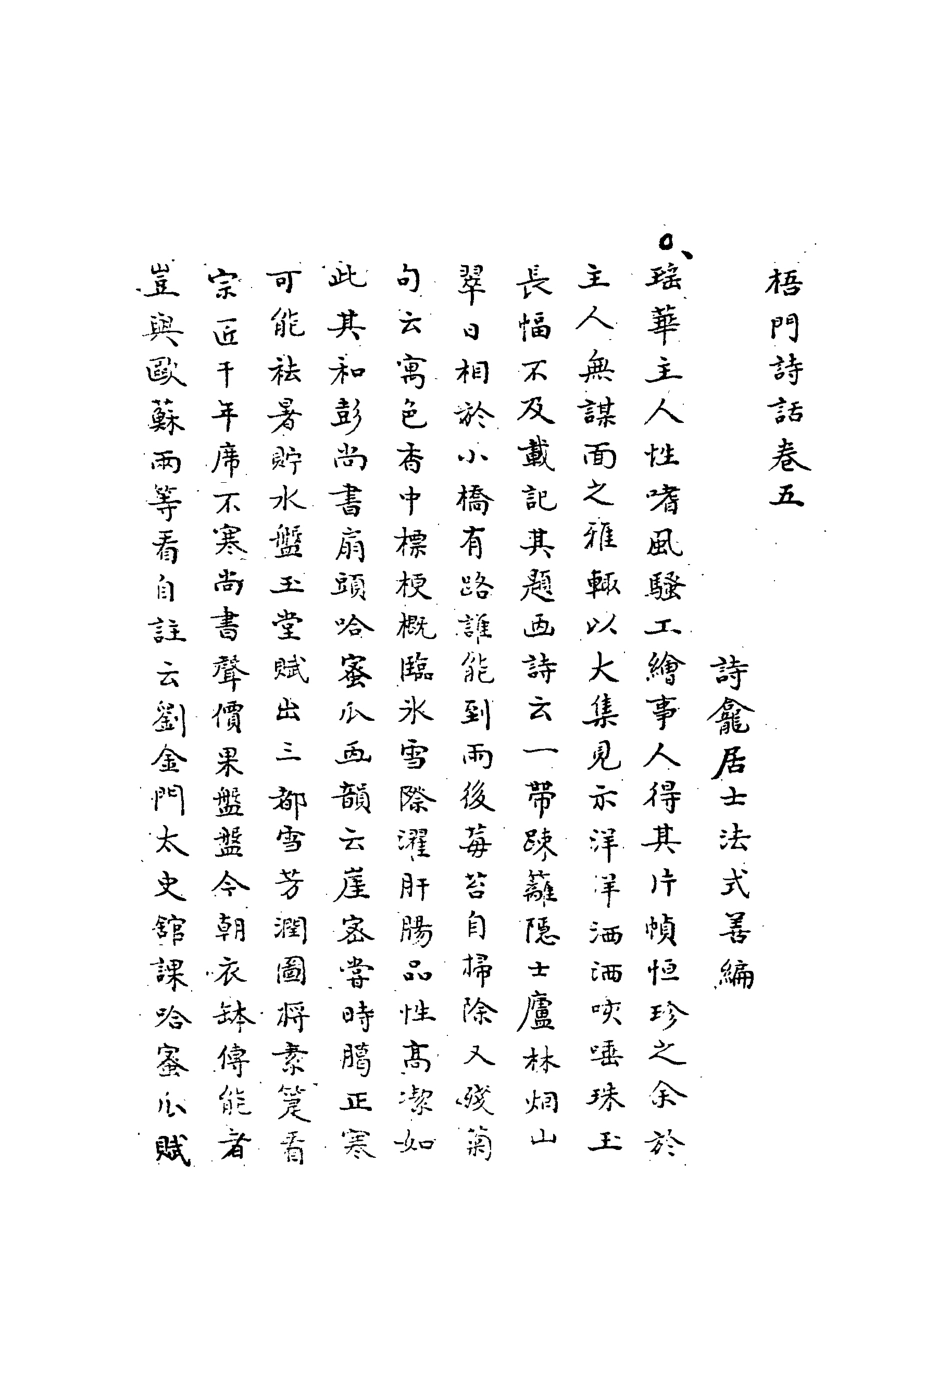 梧門詩話卷五
詩龕居士法式善編
瑶華主人性嗜風騷工繪事人得其片幀恒珍之余於
主人無謀面之雅輒以大集見示洋洋洒洒咳唾珠玉
長幅不及載記其題画詩云一帶踈籬隠士廬林烟山
翠日相於小橋有路誰能到雨後莓苔自掃除又殘菊
句云寓色香中標梗概臨氷雪際濯肝腸品性高潔如
此其和彭尚書扇頭哈蜜瓜画韻云崖宻嘗時腸正寒
可能祛暑貯水盤玉堂賦出三都雪芳潤圖将素箑看
宗匠千年席不寒尚書聲價果盤盤今朝衣缽傳能者
豈與歐蘇兩等看自註云劉金門太史舘課哈蜜瓜賦